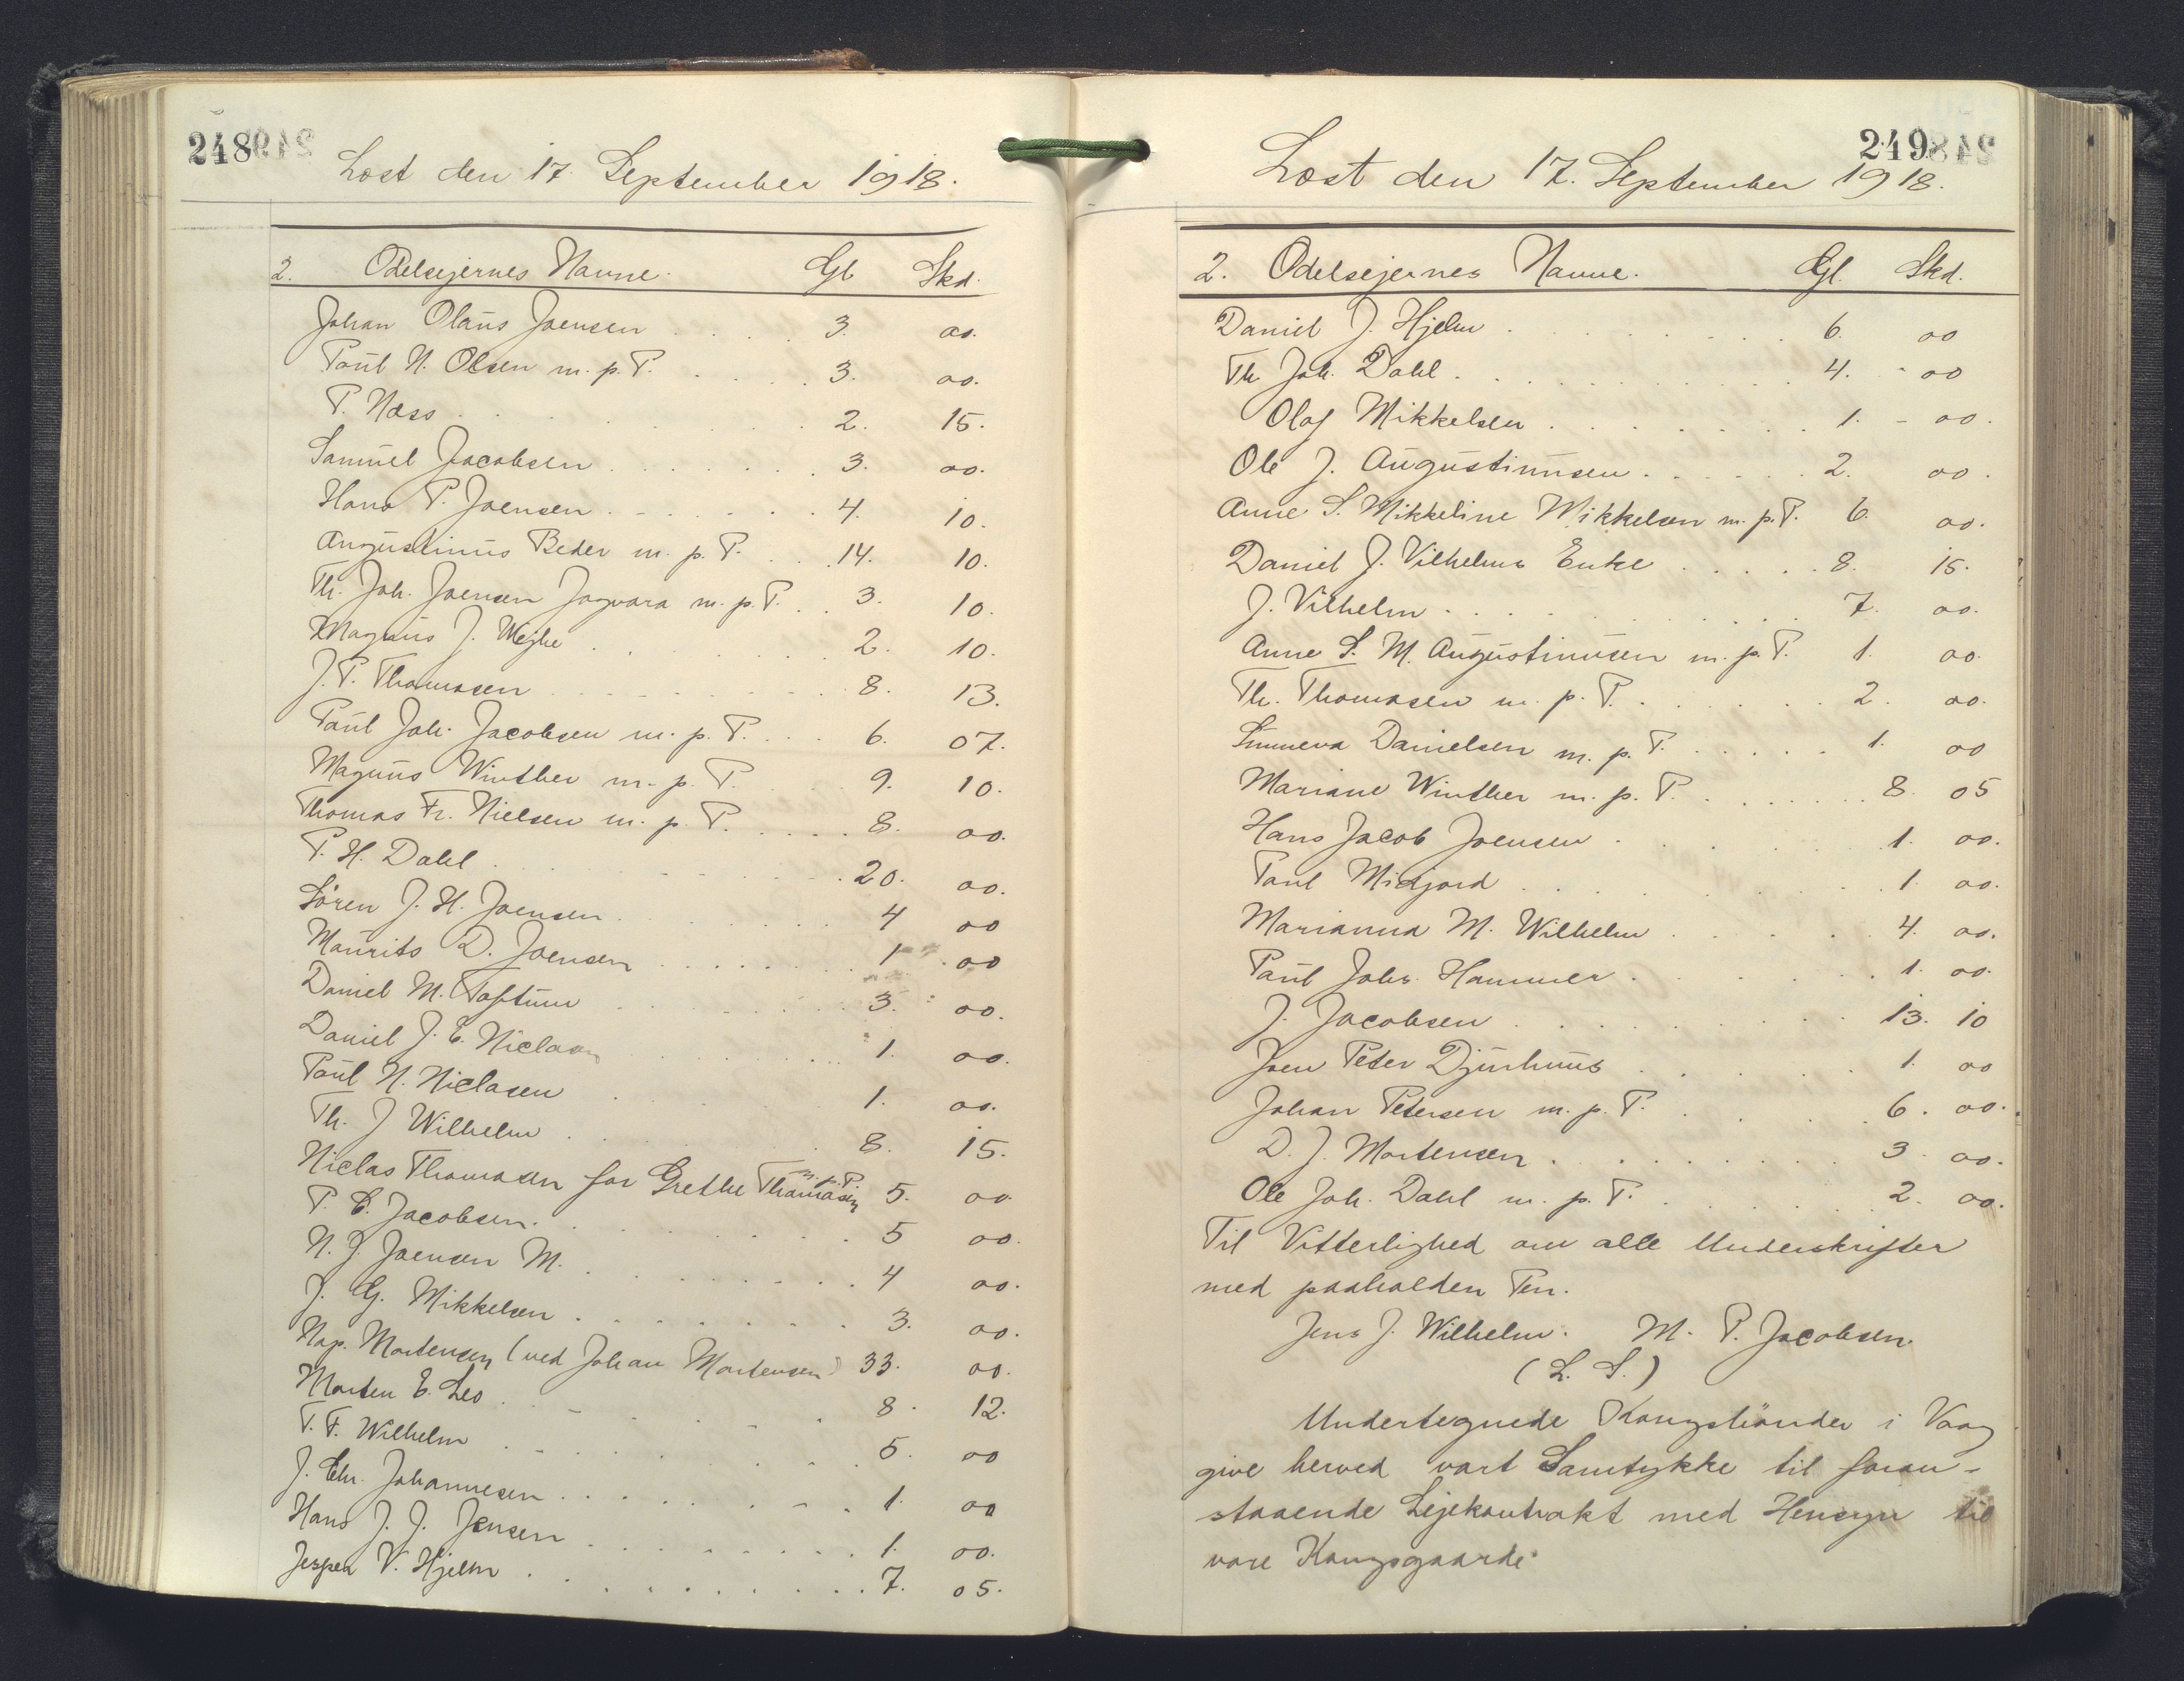 248
Læst den 17. September 1918.
2. Odelsejernes Navne. Gl. Skd.
Johan Olaus Joensen . . . 3. 00.
Poul N. Olsen m. p. P. . . . 3. 00.
P. Næss . . . 2. 15.
Samuel Jacobsen . . . 3. 00.
Hans P. Joensen . . . 4. 10.
Augustinus Beder m. p. P. . . . 14. 10.
Th. Joh. Joensen Jogvara m. p. P. . . 3. 10.
Magnus J. Wejhe . . . 2. 10.
J. P. Thomasen . . . 8. 13.
Poul Joh. Jacobsen m. p. P. . . . 6. 07.
Magnus Winther m. p. P. . . . 9. 10.
Thomas Fr. Nielsen m. p. P. . . . 8. 00.
P. H. Dahl . . . 20. 00.
Sören J. H. Joensen . . . 4 00
Maurits D. Joensen . . . 1 00
Daniel M. Toftum . . . 3. 00.
Daniel J. E. Niclasen . . . 1. 00.
Poul N. Niclasen . . . 1. 00.
Th. J Wilhelm . . . 8. 15.
Niclas Thomasen for Grethe Thomasen m. p. P. 5. 00
P. E. Jacobsen. . . . 5 00.
N. J. Joensen M. . . . 4 00.
J. G. Mikkelsen . . . 3. 00.
Nap. Mortensen (ved Johan Mortensen) 33. 00.
Morten E. Leo . . . 8. 12.
T. F. Wilhelm . . . 5. 00
J. Chr. Johannesen . . . 1. 00
Hans J. J. Jensen . . . 1. 00.
Jesper V. Hjelm . . . 7. 05.
249
Læst den 17. September 1918.
2. Odelsejernes Navne. Gl. Skd.
Daniel J. Hjelm . . . 6. 00
Th Joh. Dahl . . . 4. 00
Olaf Mikkelsen . . . 1. 00.
Ole J. Augustinusen . . . 2. 00.
Anne S. Mikkeline Mikkelsen m. p. P. 6. 00.
Daniel J. Vilhelms Enke . . . 8. 15.
J. Vilhelm . . . 7. 00.
Anne S. M. Augustinusen m. p. P. 1. 00.
Th. Thomasen m. p. P. . . . 2. 00.
Sunneva Danielsen m. p. P. . . . 1. 00
Mariane Winther m. p. P. . . . 8. 05
Hans Jacob Joensen . . . 1. 00.
Poul Midjord . . . 1. 00.
Marianna M. Wilhelm . . . 4. 00.
Poul Johs. Hammer . . . 1. 00.
J. Jacobsen . . . 13. 10
Joen Peter Djurhuus . . . 1. 00
Johan Petersen m. p. P. . . . 6. 00.
D. J. Mortensen . . . 3. 00.
Ole Joh. Dahl m. p. P. . . . 2. 00.
Til Vitterlighed om alle Underskrifter
med paaholden Pen.
Jens J. Wilhelm. M. P. Jacobsen.
(L. S.)
Undertegnede Kongsbönder i Vaag
give herved vort Samtykke til foran-
staaende Lejekontrakt med Hensyn til
vore Kongsgaarde.